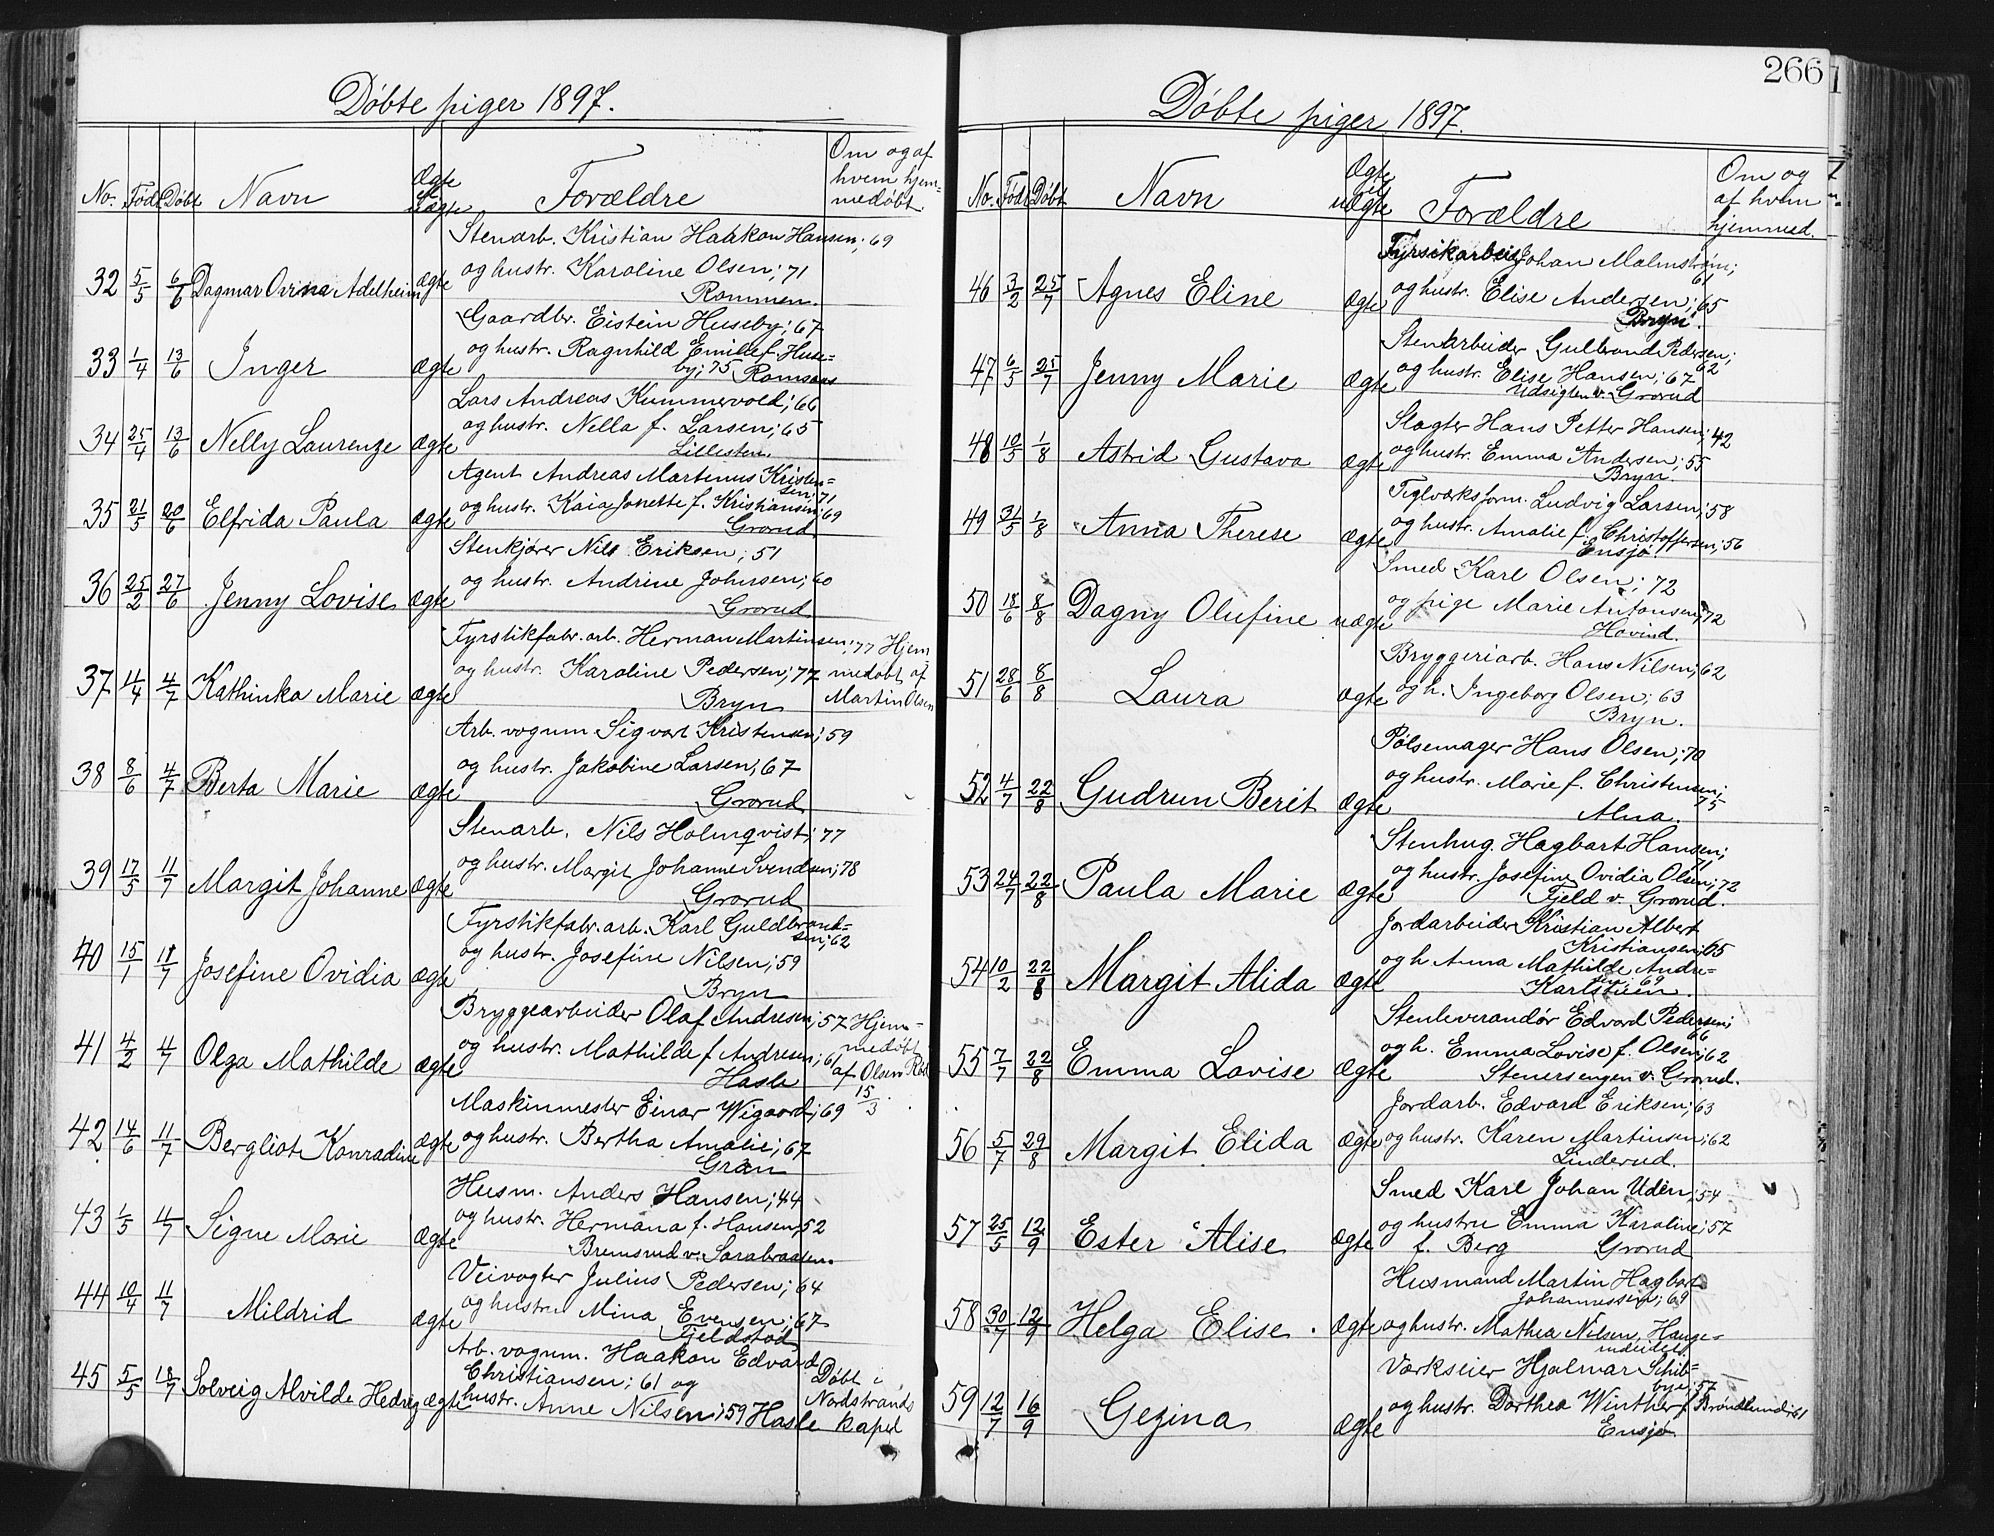 Døbte piger 1897.
No. Født Døbt Navn Ægte Uægte Forældre Om og af hvem hjem=medøbt.
Stenarb. Kristian Haakon Hansen; 69
32 5/5 6/6 Dagmar Ovina Adelheim ægte og hustr. Karoline Olsen; 71
Rommen.
Gaardbr. Eistein Huseby; 67
33 1/4 13/6 Inger ægte og hustr. Ragnhild Emilie f. Huse=
by; 75 Romsaas
Lars Andreas Kummervold; 66
34 25/4 13/6 Nelly Laurenze ægte og hustr. Nella f. Larsen; 65
Lillesten.
Agent Andreas Martinus Kristen=
sen; 71
35 21/5 20/6 Elfrida Paula ægte og hustr. Kaia Jonette f. Kristiansen; 69
Grorud
Stenkjører Nils Eriksen; 51
36 25/2 27/6 Jenny Lovise ægte og hustr. Andrine Johnsen; 60
Grorud
Fyrstikfabr. arb. Herman Martinsen; 77 Hjem
37 11/4 4/7 Kathinka Marie ægte og hustr. Karoline Pedersen; 77 medøbt af
Bryn Martin Olsen
Arb. vognm Sigvart Kristensen; 59
38 8/6 4/7 Berta Marie ægte og hustr. Jakobine Larsen; 67
Grorud
Stenarb. Nils Holmqvist; 77
39 17/5 11/7 Margit Johanne ægte og hustr. Margit Johanne Svendsen; 78
Grorud
Fyrstikfabr. arb. Karl Guldbrand=
sen; 62
40 15/1 18/7 Josefine Ovidia ægte og hustr. Josefine Nilsen; 59
Bryn
Bryggearbeider Olaf Andresen; 57 Hjem=
41 4/2 4/7 Olga Mathilde ægte og hustr. Mathilde f Andresen; 61 medøbt
Hasle af Olsen
Maskinmester Einar Wigaard; 69 15/3
42 14/6 11/7 Bergliot Konradine ægte og hustr. Bertha Amalie; 67
Gran
Husm. Anders Hansen; 44
43 1/5 11/7 Signe Marie ægte og hustr. Hermana f. Hansen; 52
Bremsrud v. Sarabraaten.
Veivogter Julius Pedersen; 64
44 10/4 11/7 Mildrid ægte og hustru Mina Evensen; 67
Fjeldstad
Arb. vognm. Haakon Edvard
45 5/5 18/7 Solveig Alvilde Hedvig ægte Christiansen; 61 og Døbt i
hustr. Anne Nilsen; 59 Hasle Nordstrands
kapel
266
Døbte piger 1897.
No. Født Døbt Navn Ægte el. uægte Forældre Om og af hvem hjemmed.
Fyrstikarbeid Johan Malmstrøm;
61
46 3/2 25/7 Agnes Eline ægte og hustr. Elise Andersen; 65
Bryn.
Stenarbeider Gulbrand Pedersen;
62
47 6/5 25/7 Jenny Marie ægte og hustr. Elise Hansen; 67
Udsigten v. Grorud
Slagter Hans Petter Hansen; 42
48 10/5 1/8 Astrid Gustava ægte og hustr. Emma Andersen; 55
Bryn.
Teglværksform. Ludvig Larsen; 58
49 31/5 1/8 Anna Therese ægte og hustr. Amalie f. Christoffersen; 56
Ensjø.
Smed Karl Olsen; 72
50 18/6 8/8 Dagny Olufine uægte og pige Marie Antonsen; 72
Hovind.
Bryggeriarb. Hans Nilsen; 62
51 28/6 8/8 Laura ægte og h. Ingeborg Olsen; 63
Bryn.
Pølsemager Hans Olsen; 70
52 4/7 22/8 Gudrun Berit ægte og hustr. Marie f. Christensen;
75
Alna.
Stenhug. Hagbart Hansen;
71
53 24/7 22/8 Paula Marie ægte og hustr. Josefine Ovidia Olsen; 72
Fjeld v. Grorud.
Jordarbeider Kristian Albert
Kristiansen; 65
54 10/2 22/8 Margit Alida ægte og h Anna Mathilde Andre=
sen; 69
Karlstuen.
Stenleverandør Edvard Pedersen;
66
55 7/7 22/8 Emma Lovise ægte og h. Emma Lovise f. Olsen; 62
Stenersengen v. Grorud.
Jordarb. Edvard Eriksen; 63
56 5/7 29/8 Margit Elida ægte og hustr. Karen Martinsen; 62
Linderud.
Smed Karl Johan Udén; 54
57 25/5 12/9 Ester Alise ægte og hustru Emma Karoline; 57
f. Berg Grorud
Husmand Martin Hagbart
Johannessen; 69
58 30/7 12/9 Helga Elise ægte og hustr. Mathea Nilsen, Hauge=
Værkseier Hjalmar Schib=
bye; 57
59 12/7 16/9 Gezina ægte og hustr. Dorthea Winther f. Brøndlund; 61
Ensjø